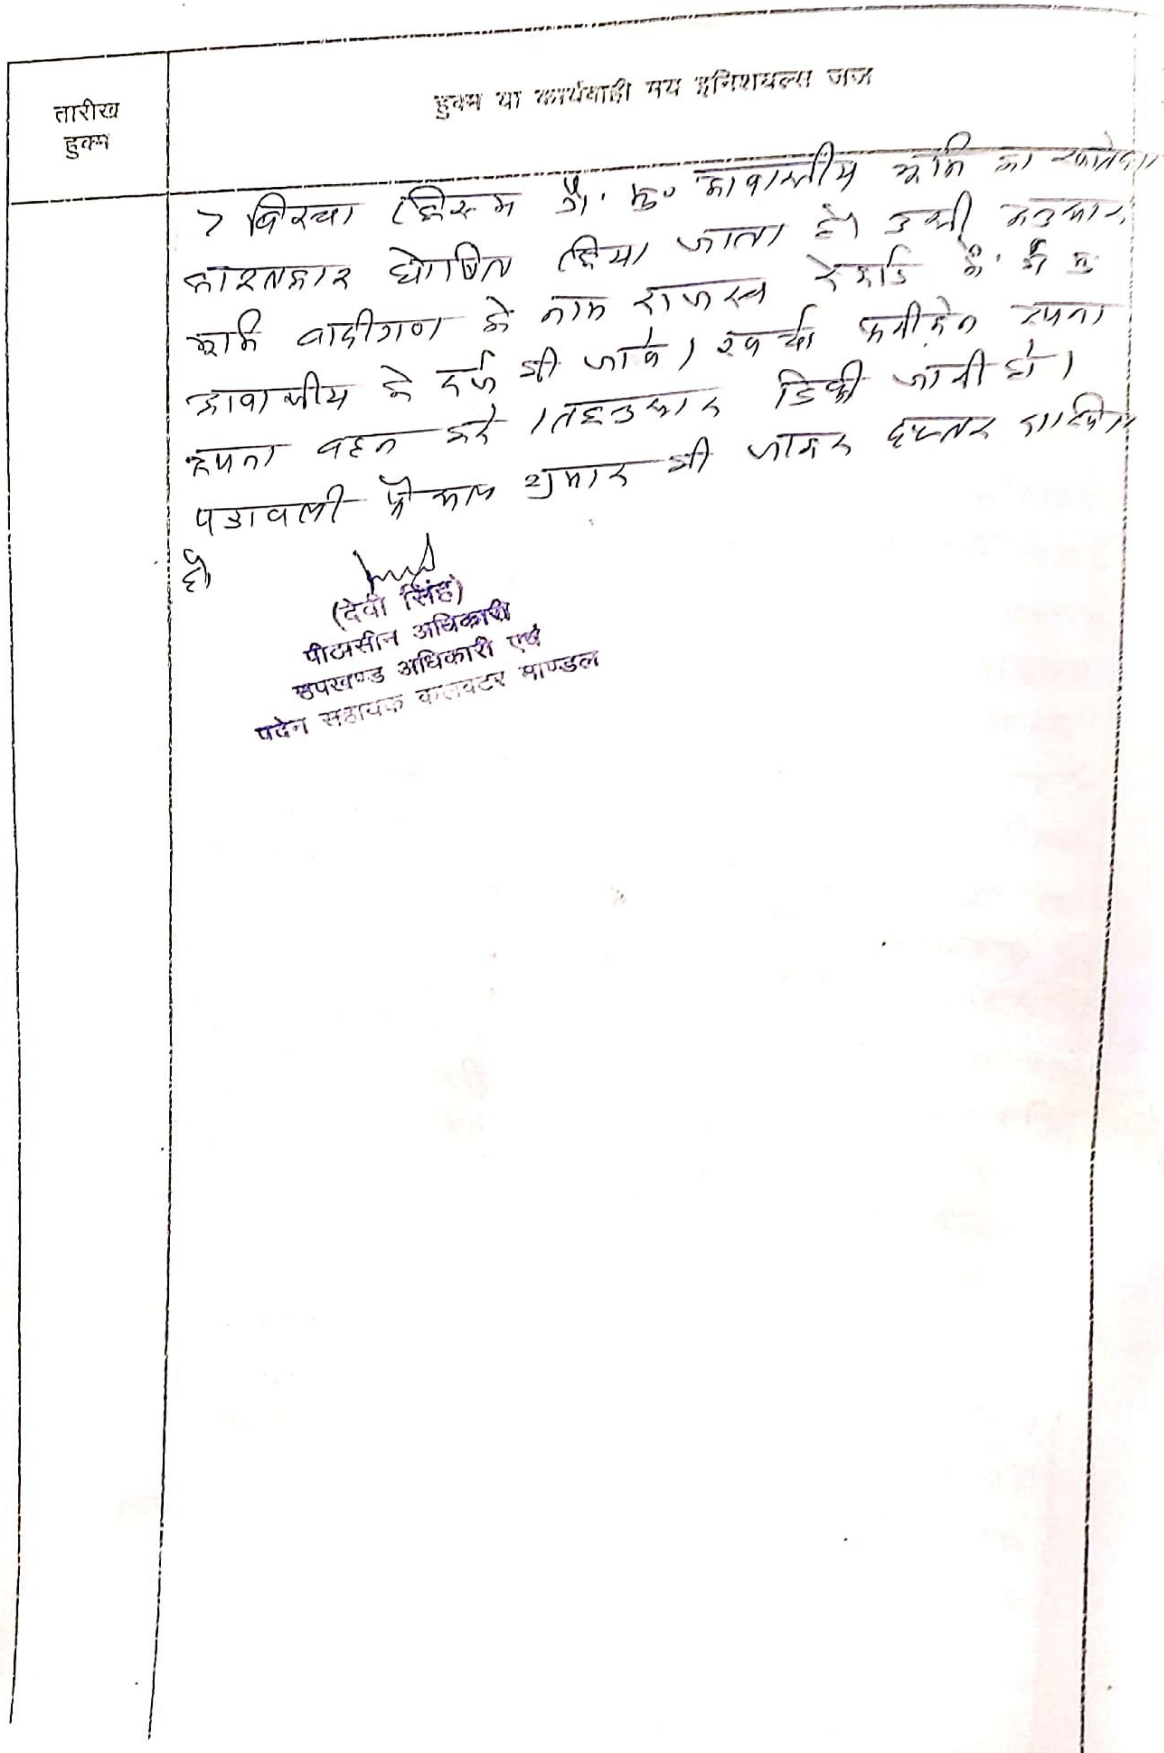 तारीख
हुक्म
हुक्म या कार्यवाही मय इनिशयल्स जज
7 बिस्वा किस्म गै. मु० आवासीय भूमि का खातेदार
काश्तकार घोषित किया जाता है। उसी अनुसार
भूमि वादीगण के नाम राजस्व रेकार्ड में गै मु
आवासीय के दर्ज की जावे। खर्चा फरीकेन अपना
अपना वहन करे। तदनुसार डिक्री जारी हो।
पत्रावली फैसल शुमार की जाकर दफ्तर दाखिल
हो
(देवी सिंह)
पीठासीन अधिकारी
उपखण्ड अधिकारी एवं
पदेन सहायक कलक्टर माण्डल